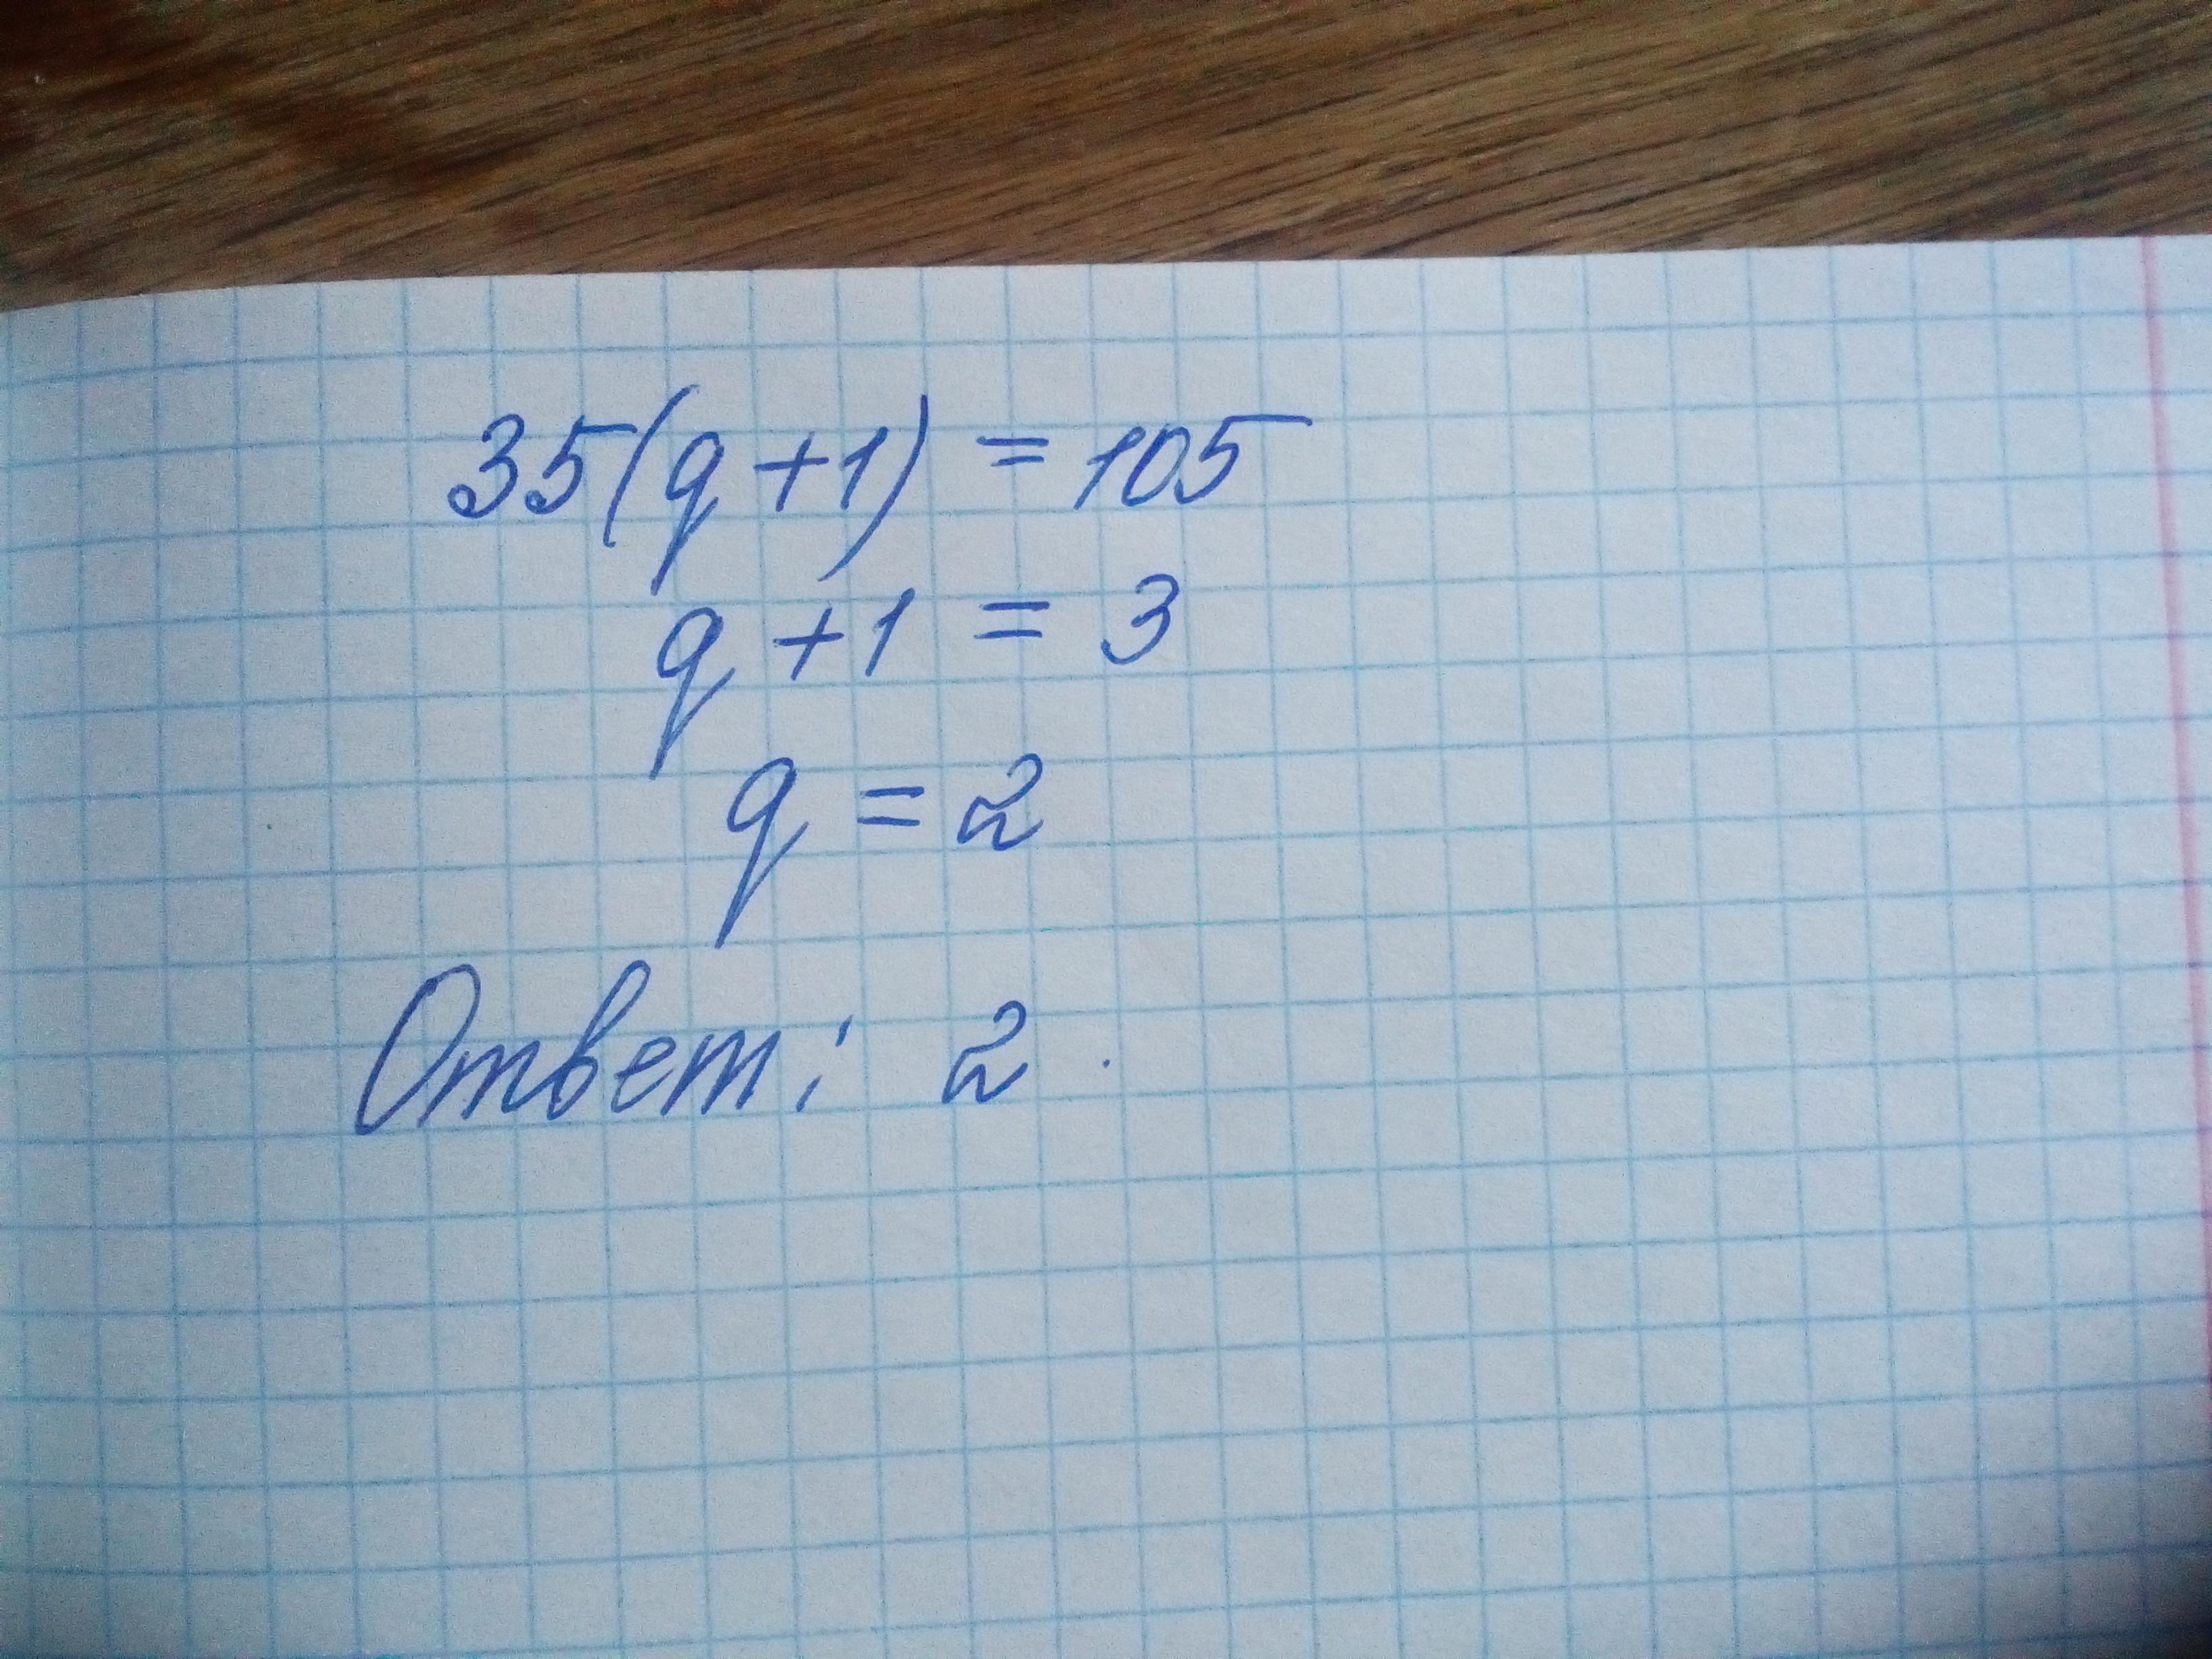 35(q+1) = 105
q+1 = 3
q = 2
Ответ: 2.